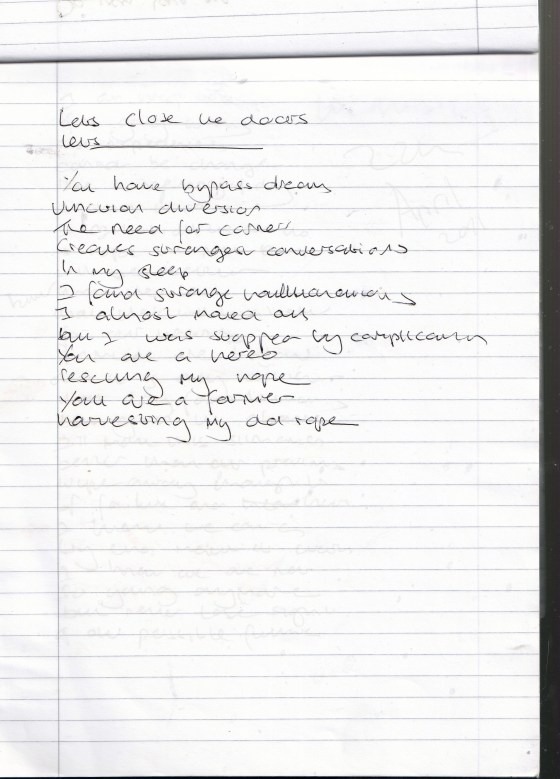 Lets close the doors
lets
You have bypass dreams
diversion
the need for corners
Creates stranger conversations
In my sleep
I found strange
I almost made out
but I was stopped by complication
You are a hero
rescuing my hope
You are a farmer
harvesting my old rope